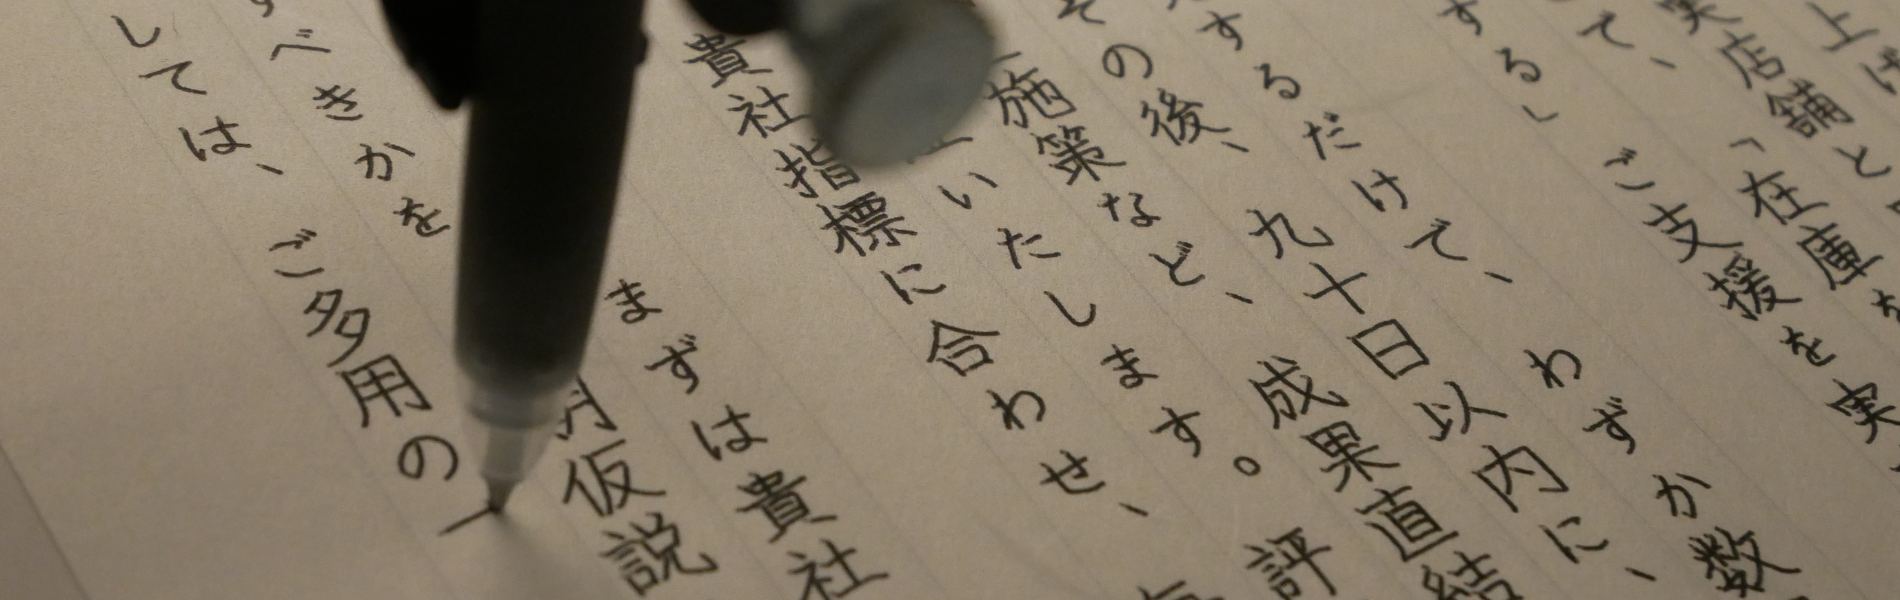 上げ
実店舗と
て、「在庫を
する」ご支援を実
するだけで、わずか数
その後、九十日以内に、
施策など、成果直結
いたします。評
貴社指標に合わせ、
まずは貴社
すべきかを 仮説
しては、ご多用の